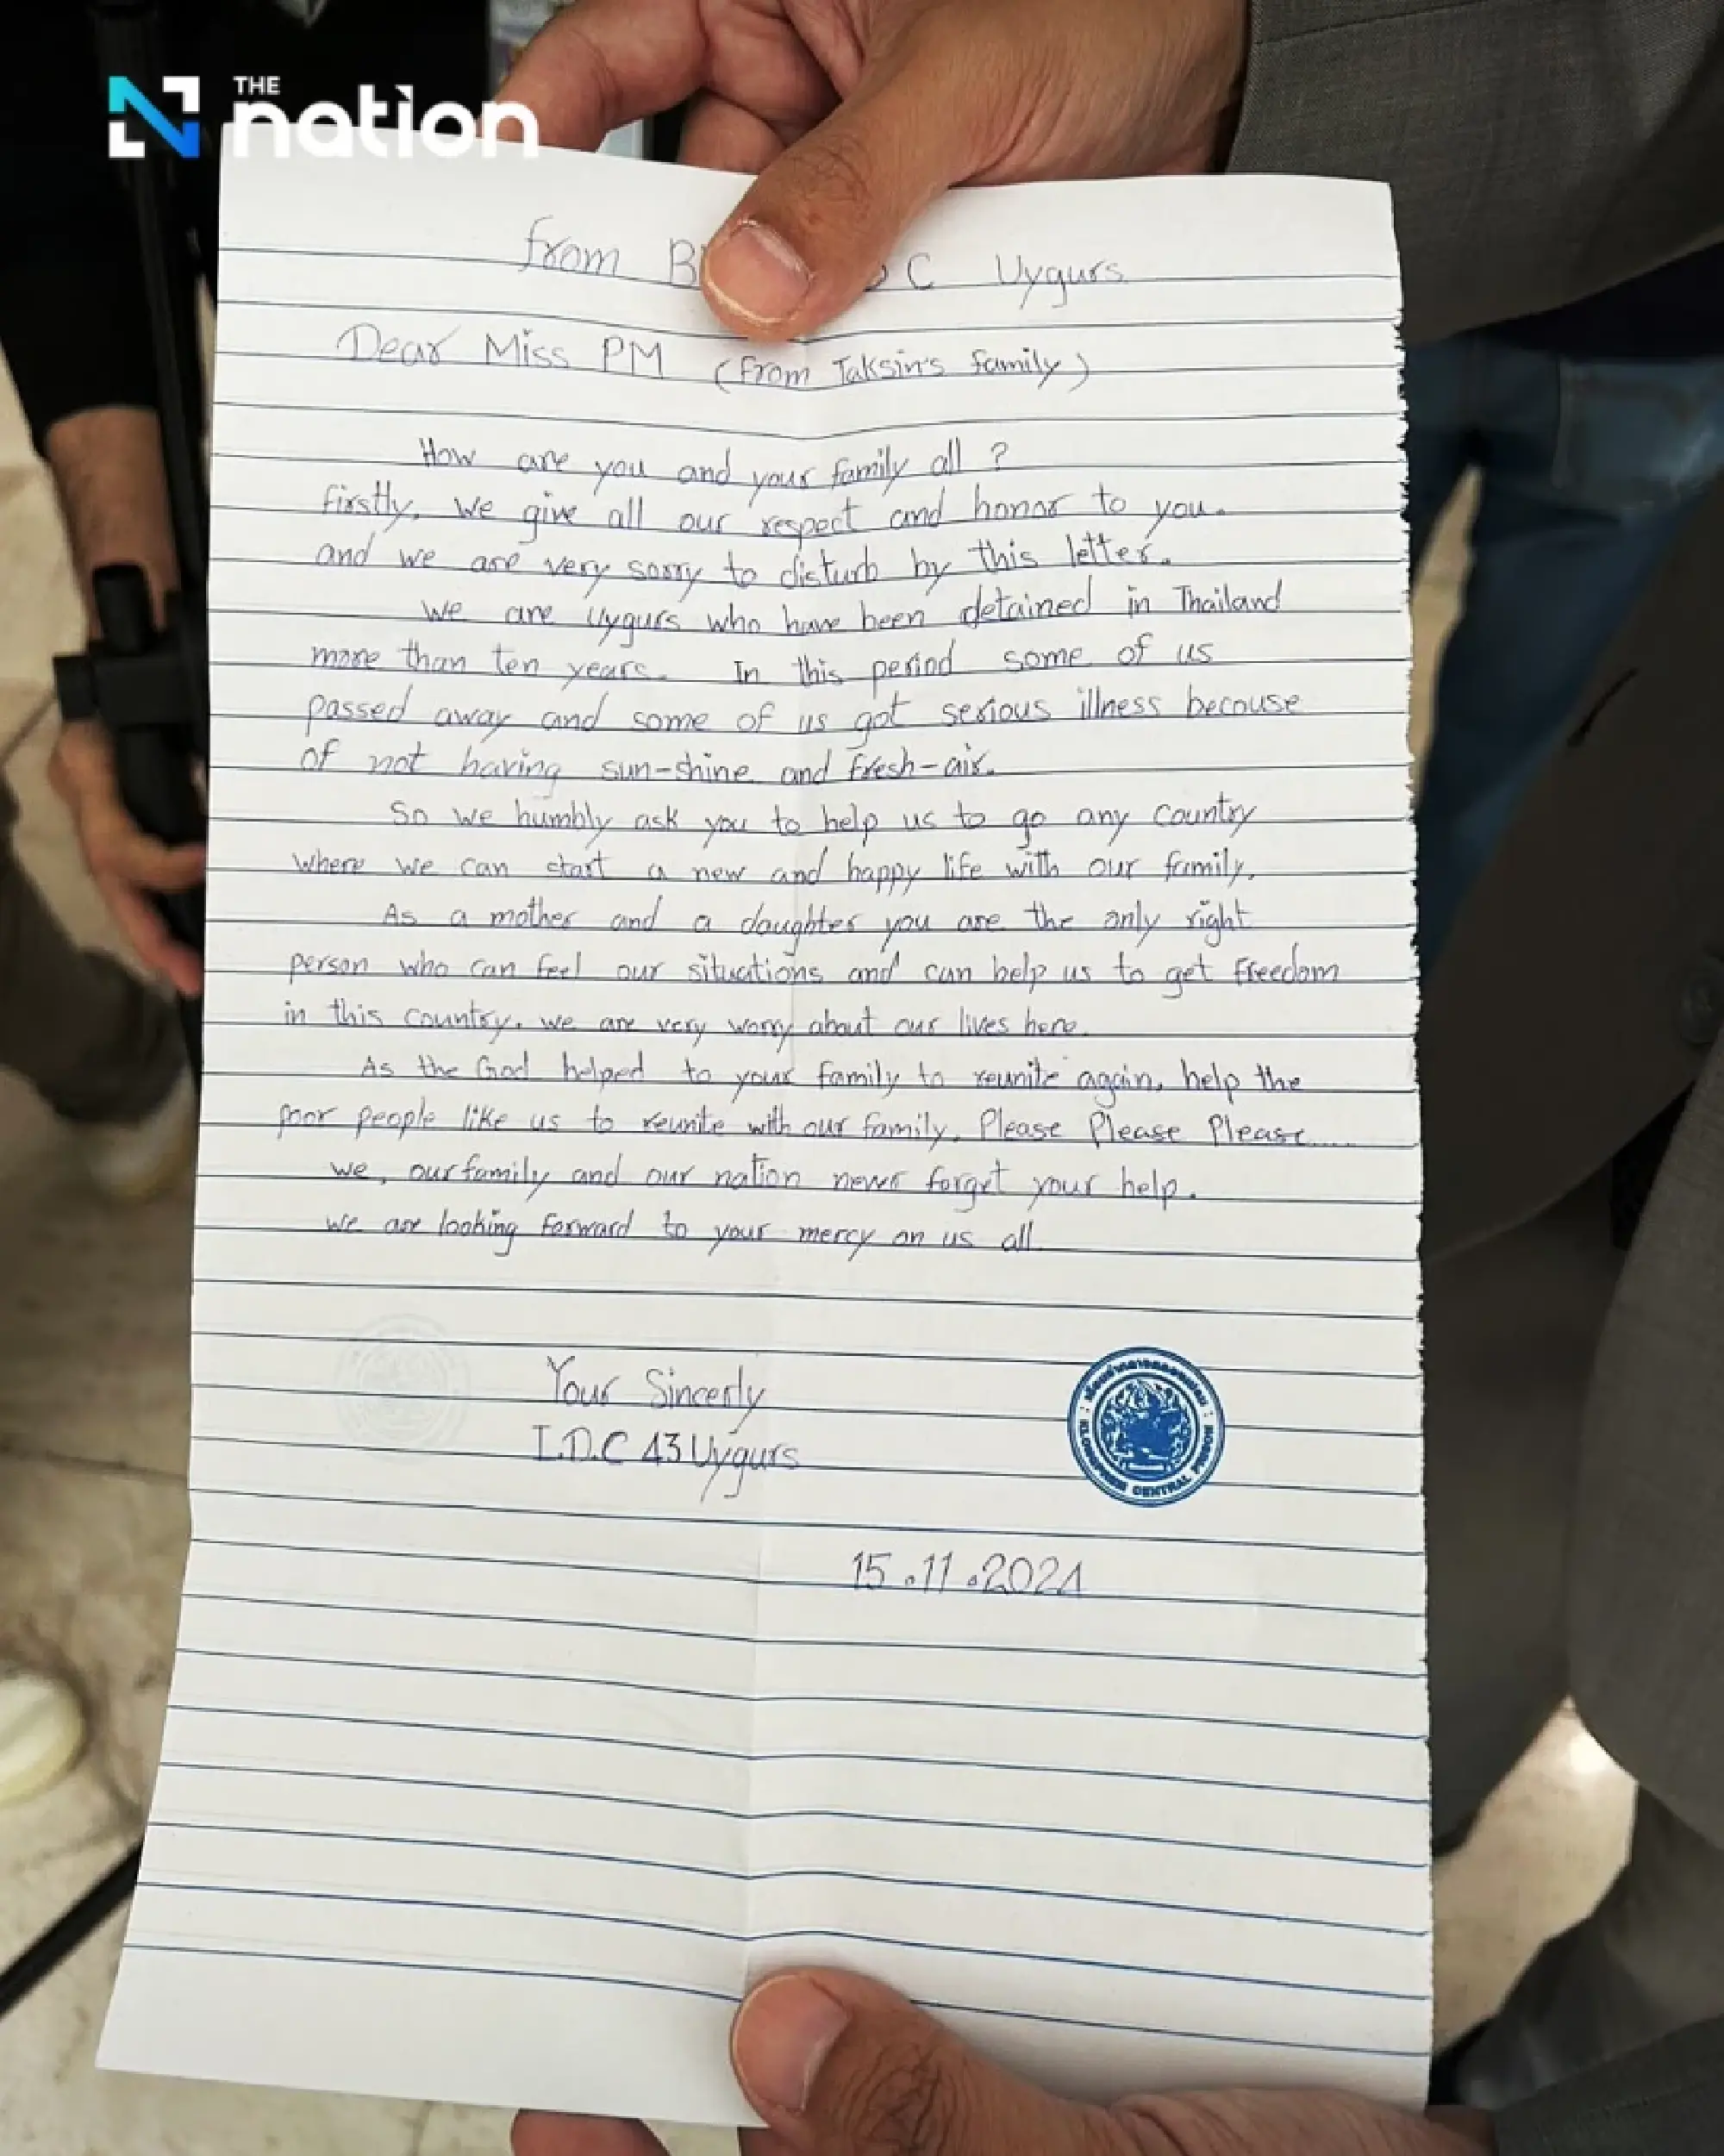 THE nation
from B C Uygurs
Dear Miss PM (from Taksin's family)
How are you and your family all ?
firstly, we give all our respect and honor to you.
and we are very sorry to disturb by this letter.
we are Uygurs who have been detained in Thailand
more than ten years. In this period some of us
passed away and some of us got serious illness becouse
of not having sun-shine and fresh-air.
So we humbly ask you to help us to go any country
where we can start a new and happy life with our family.
As a mother and a daughter you are the only right
person who can feel our situations and can help us to get freedom
in this country. we are very worry about our lives here.
As the God helped to your family to reunite again, help the
poor people like us to reunite with our family. Please Please Please.....
we, our family and our nation never forget your help.
we are looking forward to your mercy on us all.
Your Sincerly
I.D.C 43 Uygurs
KLONGPREM CENTRAL PRISON
15.11.2024